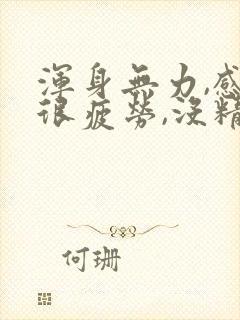 渾身無力,感
很疲勞,沒精
何珊